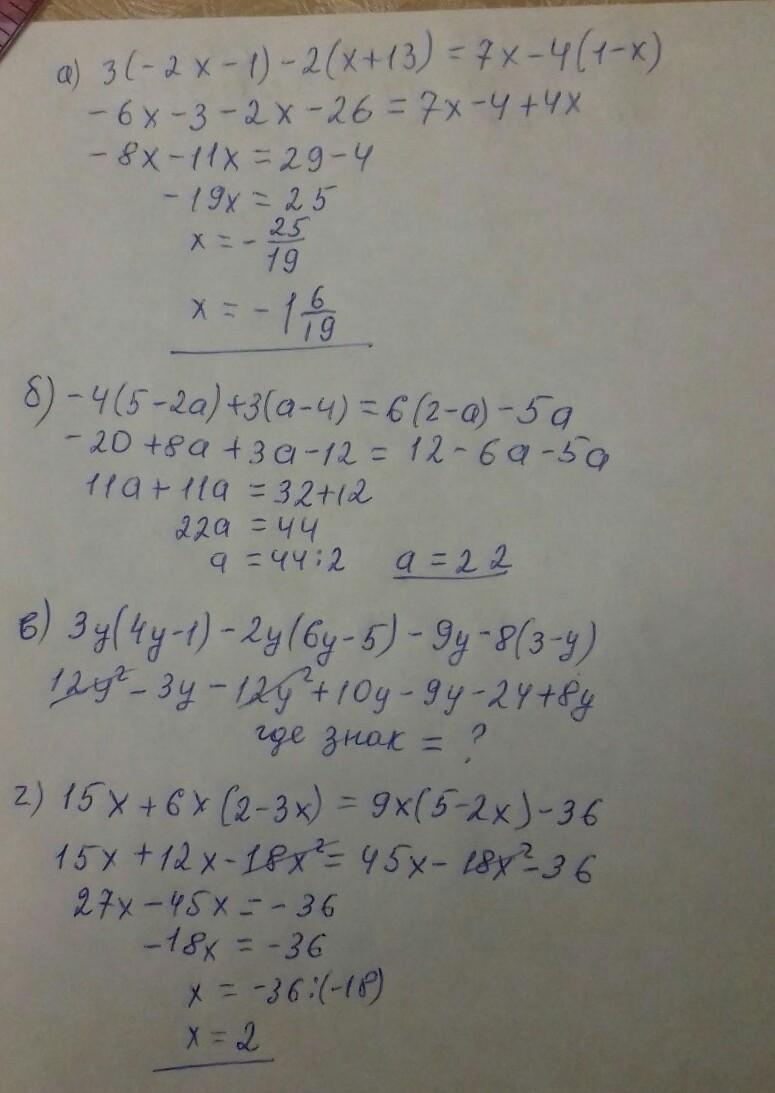 а) 3(-2x-1)-2(x+13)=7x-4(1-x)
-6x-3-2x-26=7x-4+4x
-8x-11x=29-4
-19x=25
x=-25/19
x=-1 6/19
б) -4(5-2a)+3(a-4)=6(2-a)-5a
-20+8a+3a-12=12-6a-5a
11a+11a=32+12
22a=44
a=44:2 a=22
в) 3y(4y-1)-2y(6y-5)-9y-8(3-y)
12y²-3y-12y²+10y-9y-24+8y
где знак = ?
г) 15x+6x(2-3x)=9x(5-2x)-36
15x+12x-18x²=45x-18x²-36
27x-45x=-36
-18x=-36
x=-36:(-18)
x=2